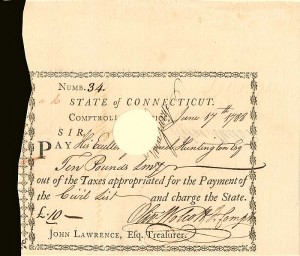 NUMB. 34.
STATE OF CONNECTICUT.
COMPTROLLER'S OFFICE, June 17th 1788
SIR,
PAY His Excellency Samuel Huntington Esq
Ten Pounds
out of the Taxes appropriated for the Payment of
the Civil List and charge the State.
£10—
Oliv Wolcott Jr Compt
JOHN LAWRENCE, Esq. Treasurer.